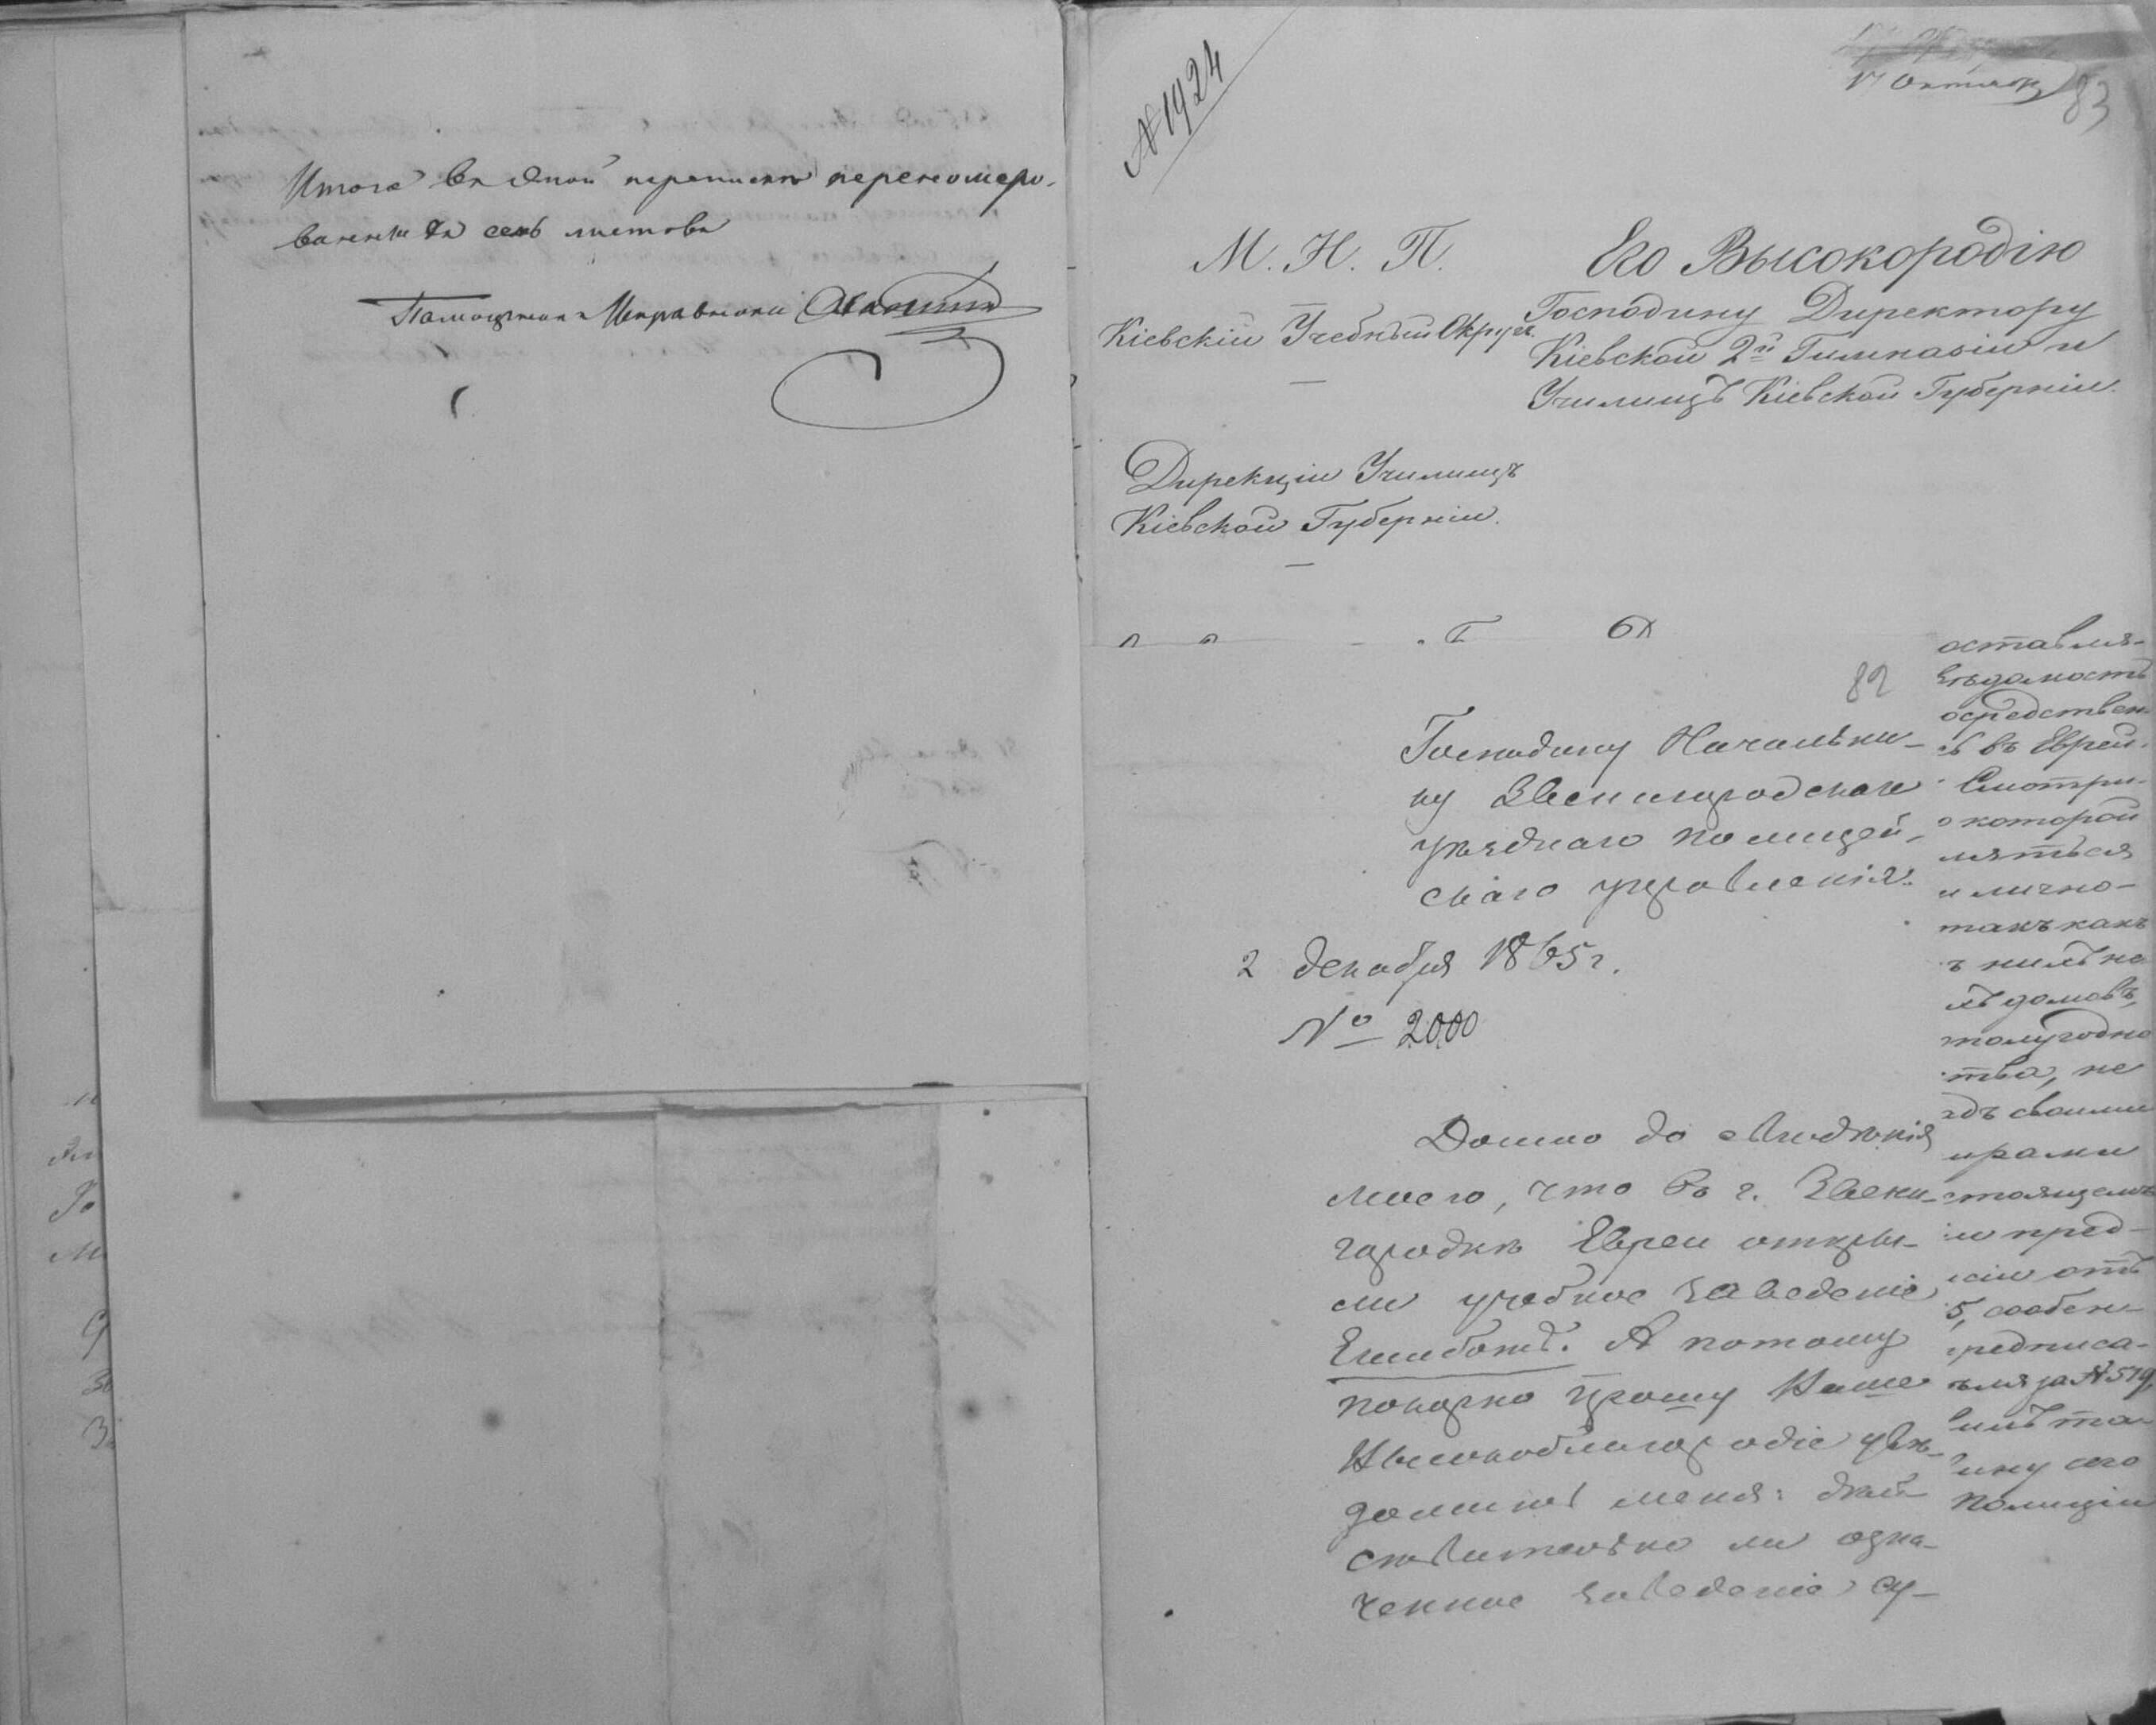 Итого въ этой переписки перенумеро-
ванныхъ семь листовъ
Помощникъ Исправника
№ 1924
17 Октября
83
М. Н. П.
Кіевскій Учебный Округъ.
Дирекціи Училищъ
Кіевской Губерніи.
Его Высокородію
Господину Директору
Кіевской 2й Гимназіи и
Училищъ Кіевской Губерніи.
82
Господину Начальни-
ку Звенигородскаго
уѣзднаго полицей-
скаго управленія.
2 декабря 1865 г.
№ 2000
Дошло до свѣдѣнія
моего, что въ г. Звени-
городкѣ Евреи откры-
ли учебное заведеніе
Ешиботъ. А потому
покорно прошу Ваше
Высокоблагородіе увѣ-
домить меня: дѣй-
ствительно ли озна-
ченное заведеніе су-
оставля-
вѣдомость
осредствен-
ъ въ Еврей-
Смотри-
о которой
ляться
и лично-
такъ какъ
ъ нимъ на
хъ домовъ,
толугодно
тва, не
адъ своими
ирами
стоящемъ
и пред-
ніи отъ
5, особен-
редписа-
ѣля за № 519,
вимъ та-
чину сего
Полиціи